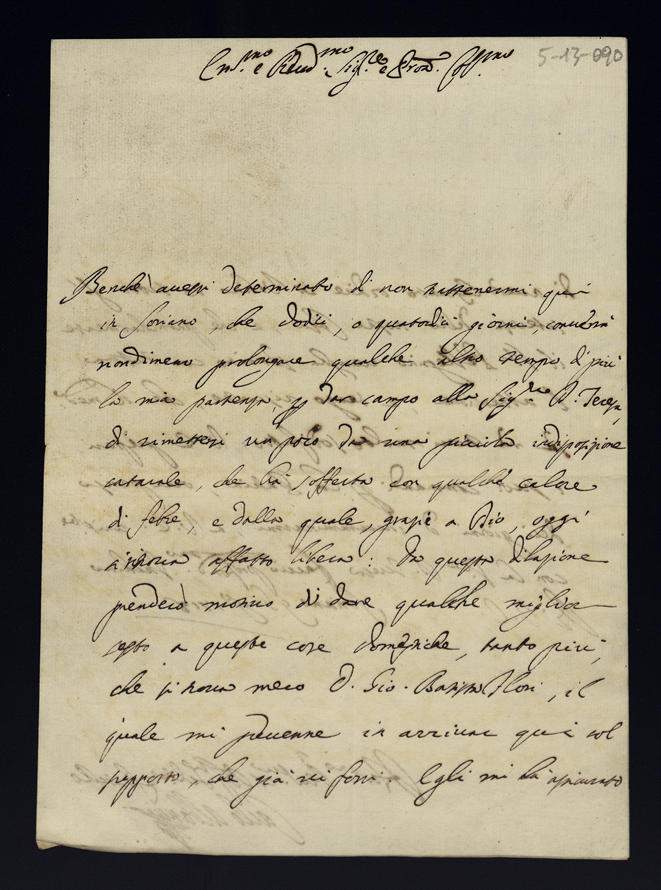 5-13-090
Em.mo e Rev.mo Sig.re e Pron. Oss.mo
Benche avessi determinato di non trattenermi quì
in Soriano, che dodici, o quatordici giorni, converrà
nondimeno prolongare qualche altro tempo di più
la mia partenza, per dar campo alla Sig.ra D. Teresa,
di rimettersi un poco da una piccola indisposizione
catarale, che hà sofferta con qualche calore
di febre, e dalla quale, grazie a Dio, oggi
si ritrova affatto libera: da questa dilazione
prenderò motivo di dare qualche miglior
sesto a queste cose domestiche, tanto più,
che si trova meco D. Gio. Batista Flori, il
quale mi prevenne in arrivar quì col
supposto, che già vi fossi. Egli mi hà assicurato